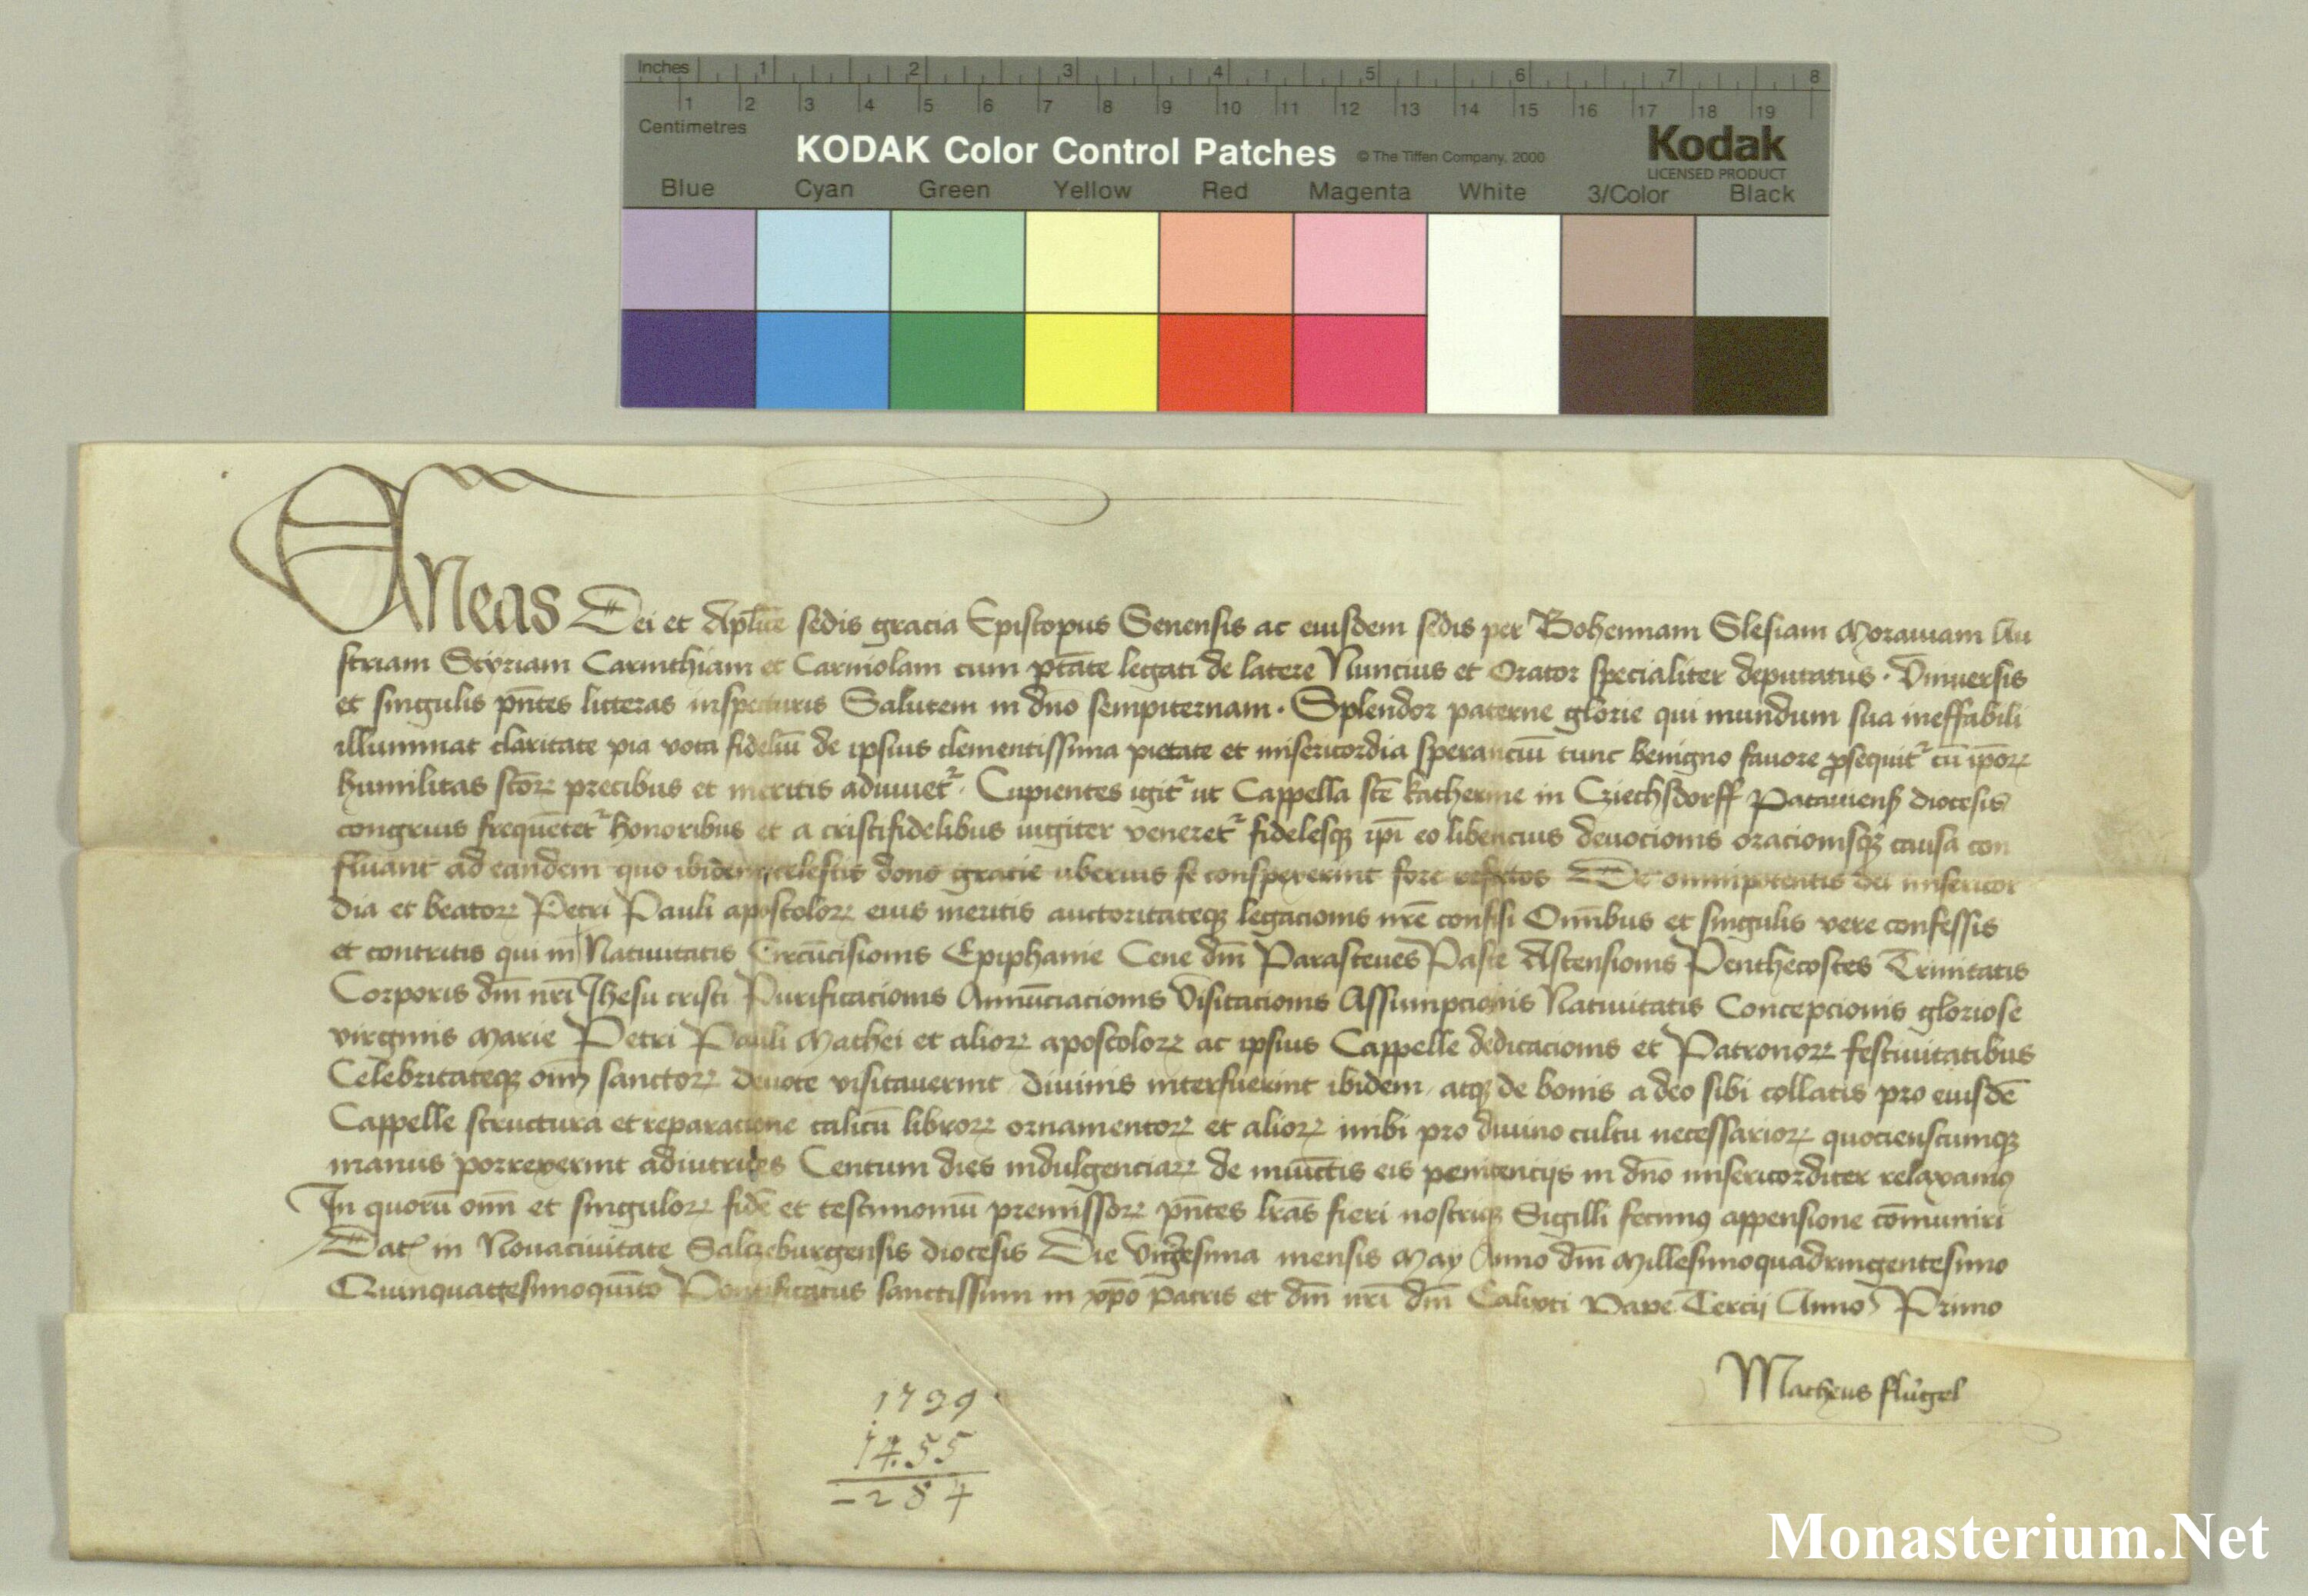 Inches 1 2 3 4 5 6 7 8
1 2 3 4 5 6 7 8 9 10 11 12 13 14 15 16 17 18 19
Centimetres
KODAK Color Control Patches © The Tiffen Company, 2000 Kodak
LICENSED PRODUCT
Blue Cyan Green Yellow Red Magenta White 3/Color Black
Eneas Dei et Aplice sedis gracia Episcopus Senensis ac eiusdem sedis per Bohemiam Slesiam Morauiam Au
striam Stiriam Carinthiam et Carniolam cum ptate legati de latere Nuncius et Orator specialiter deputatus · Vniuersis
et singulis pntes litteras inspecturis Salutem in dno sempiternam · Splendor paterne glorie qui mundum sua ineffabili
illuminat claritate pia vota fideliū de ipsius clementissima pietate et misericordia speranciū tunc benigno fauore ꝓsequitr cū ipoꝝ
humilitas scōꝝ precibus et meritis adiuuetr · Cupientes igitr ut Cappella scē katherine in Cziechsdorff Patauiens diocesis
congruis frequētetr honoribus et a cristifidelibus iugiter veneretr fidelesqꝫ ipi eo libencius deuocionis oracionisqꝫ causa con
fluant ad eandem quo ibidem celestis dono gracie uberius se conspexerint fore refectos De omnipotentis dei misericor
dia et beatoꝝ Petri Pauli apostoloꝝ eius meritis auctoritateqꝫ legacionis nrē confisi Omībus et singulis vere confessis
et contritis qui in Natiuitatis Circūcisionis Epiphanie Cene dni Parasceues Pasce Ascensionis Penthecostes Trinitatis
Corporis dni nri Jhesu cristi Purificacionis Annūciacionis Visitacionis Assumpcionis Natiuitatis Concepcionis gloriose
virginis Marie Petri Pauli Mathei et alioꝝ apostoloꝝ ac ipsius Cappelle dedicacionis et Patronoꝝ festiuitatibus
Celebritateqꝫ oīm sanctoꝝ deuote visitauerint diuinis interfuerint ibidem atqꝫ de bonis a deo sibi collatis pro eiusdē
Cappelle structura et reparacione calicū libroꝝ ornamentoꝝ et alioꝝ inibi pro diuino cultu necessarioꝝ quocienscumqꝫ
manus porrexerint adiutrices Centum dies indulgenciaꝝ de iniūctis eis penitencijs in dno misericorditer relaxamꝰ
In quorū oīm et singuloꝝ fidē et testimoniū premissoꝝ pntes lras fieri nostriqꝫ Sigilli fecimꝰ appensione cōmuniri
Dat in Nouaciuitate Salczeburgensis diocesis Die Vigesima mensis May Anno dni Millesimoquadringentesimo
Quinquagesimoquīto Pontificatus sanctissimi in xpo patris et dni nri dni Calixti Pape Tercij Anno Primo
Matheus flugel
1739
1455
- 284
Monasterium.Net